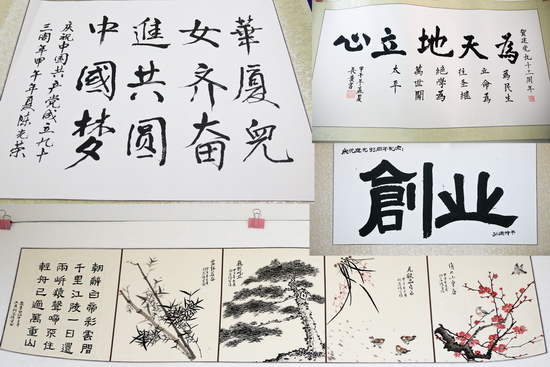 華廈兒
女齐奋
進共圆
中國梦
庆祝中国共产党成立九十
三周年甲午年夏陈光荣
贺建党九十三周年
為天地立心
為民生
立命為
往圣継
绝学為
萬世開
太平
甲午年孟夏
庆祝建党93周年纪念
創业
朝辭白帝彩雲間
千里江陵一日還
兩岸猿聲啼不住
輕舟已過萬重山